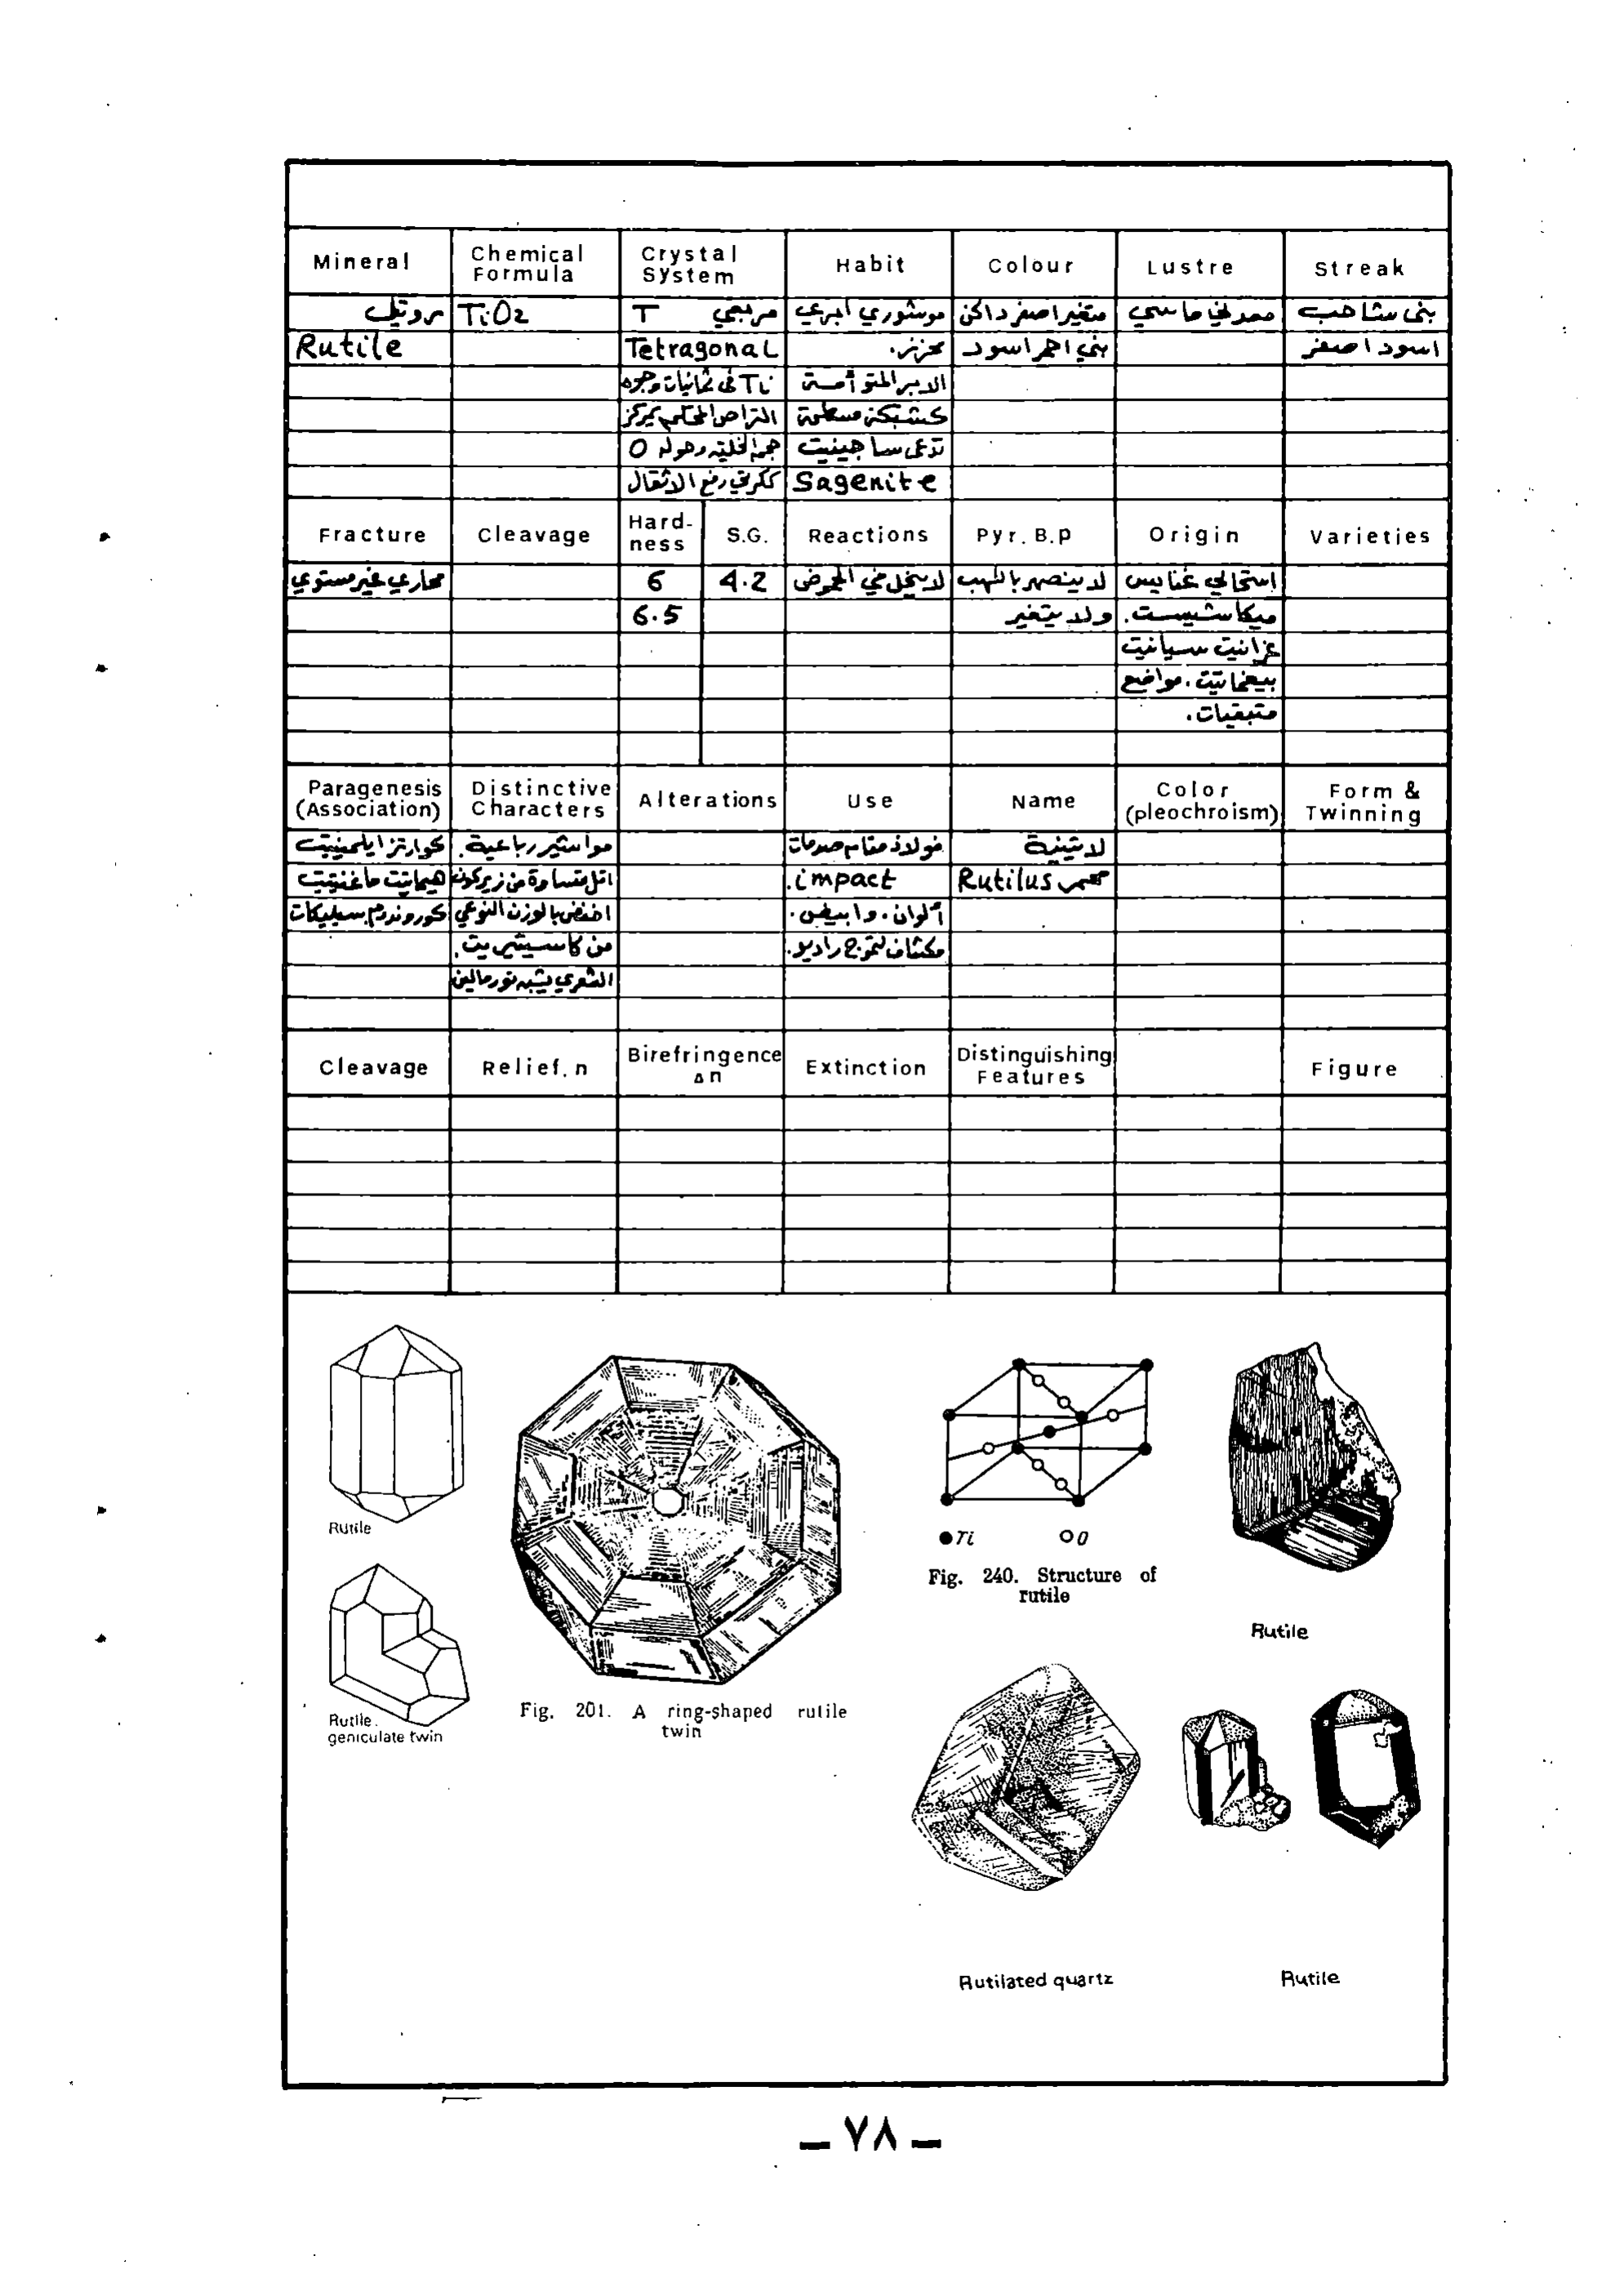 Mineral Chemical Formula Crystal System Habit Colour Lustre Streak
روتيل TiO2 T مربعي موشوري ابري متغير اصفر داكن معدني ماسي بني شاحب
Rutile Tetragonal محزز. بني احمر اسود اسود اصفر
Ti في ثمانيات وجوه الابر المتوأمة
التراص المحكم بمركز كشبكة مسطحة
حجم الخلية وحوله O تدعى ساجينيت
ككرتي رفع الاثقال Sagenite
Fracture Cleavage Hardness S.G. Reactions Pyr. B.p Origin Varieties
محاري غير مستوي 6 4.2 لا ينحل في الحموض لا ينصهر باللهب استحالي غنايس
6.5 ولا يتغير ميكاشيست.
غرانيت سيانيت
بيغماتيت. مواضع
متبقيات.
Paragenesis (Association) Distinctive Characters Alterations Use Name Color (pleochroism) Form & Twinning
كوارتز ايلمينيت مواشير رباعية. فولاذ مقام صدمات لاتينية
هيماتيت ماغنتيت اقل قساوة من زيركون impact. Rutilus
كوروندوم سيليكات اخفض بالوزن النوعي ألوان.
من كاسيتيريت. لتموج راديو.
الشعري يشبه تورمالين
Cleavage Relief. n Birefringence Δn Extinction Distinguishing Features Figure
Rutile
Rutile.
geniculate twin
Fig. 201. A ring-shaped rutile
twin
●Ti ○O
Fig. 240. Structure of
rutile
Rutile
Rutilated quartz
Rutile
– ٧٨ –